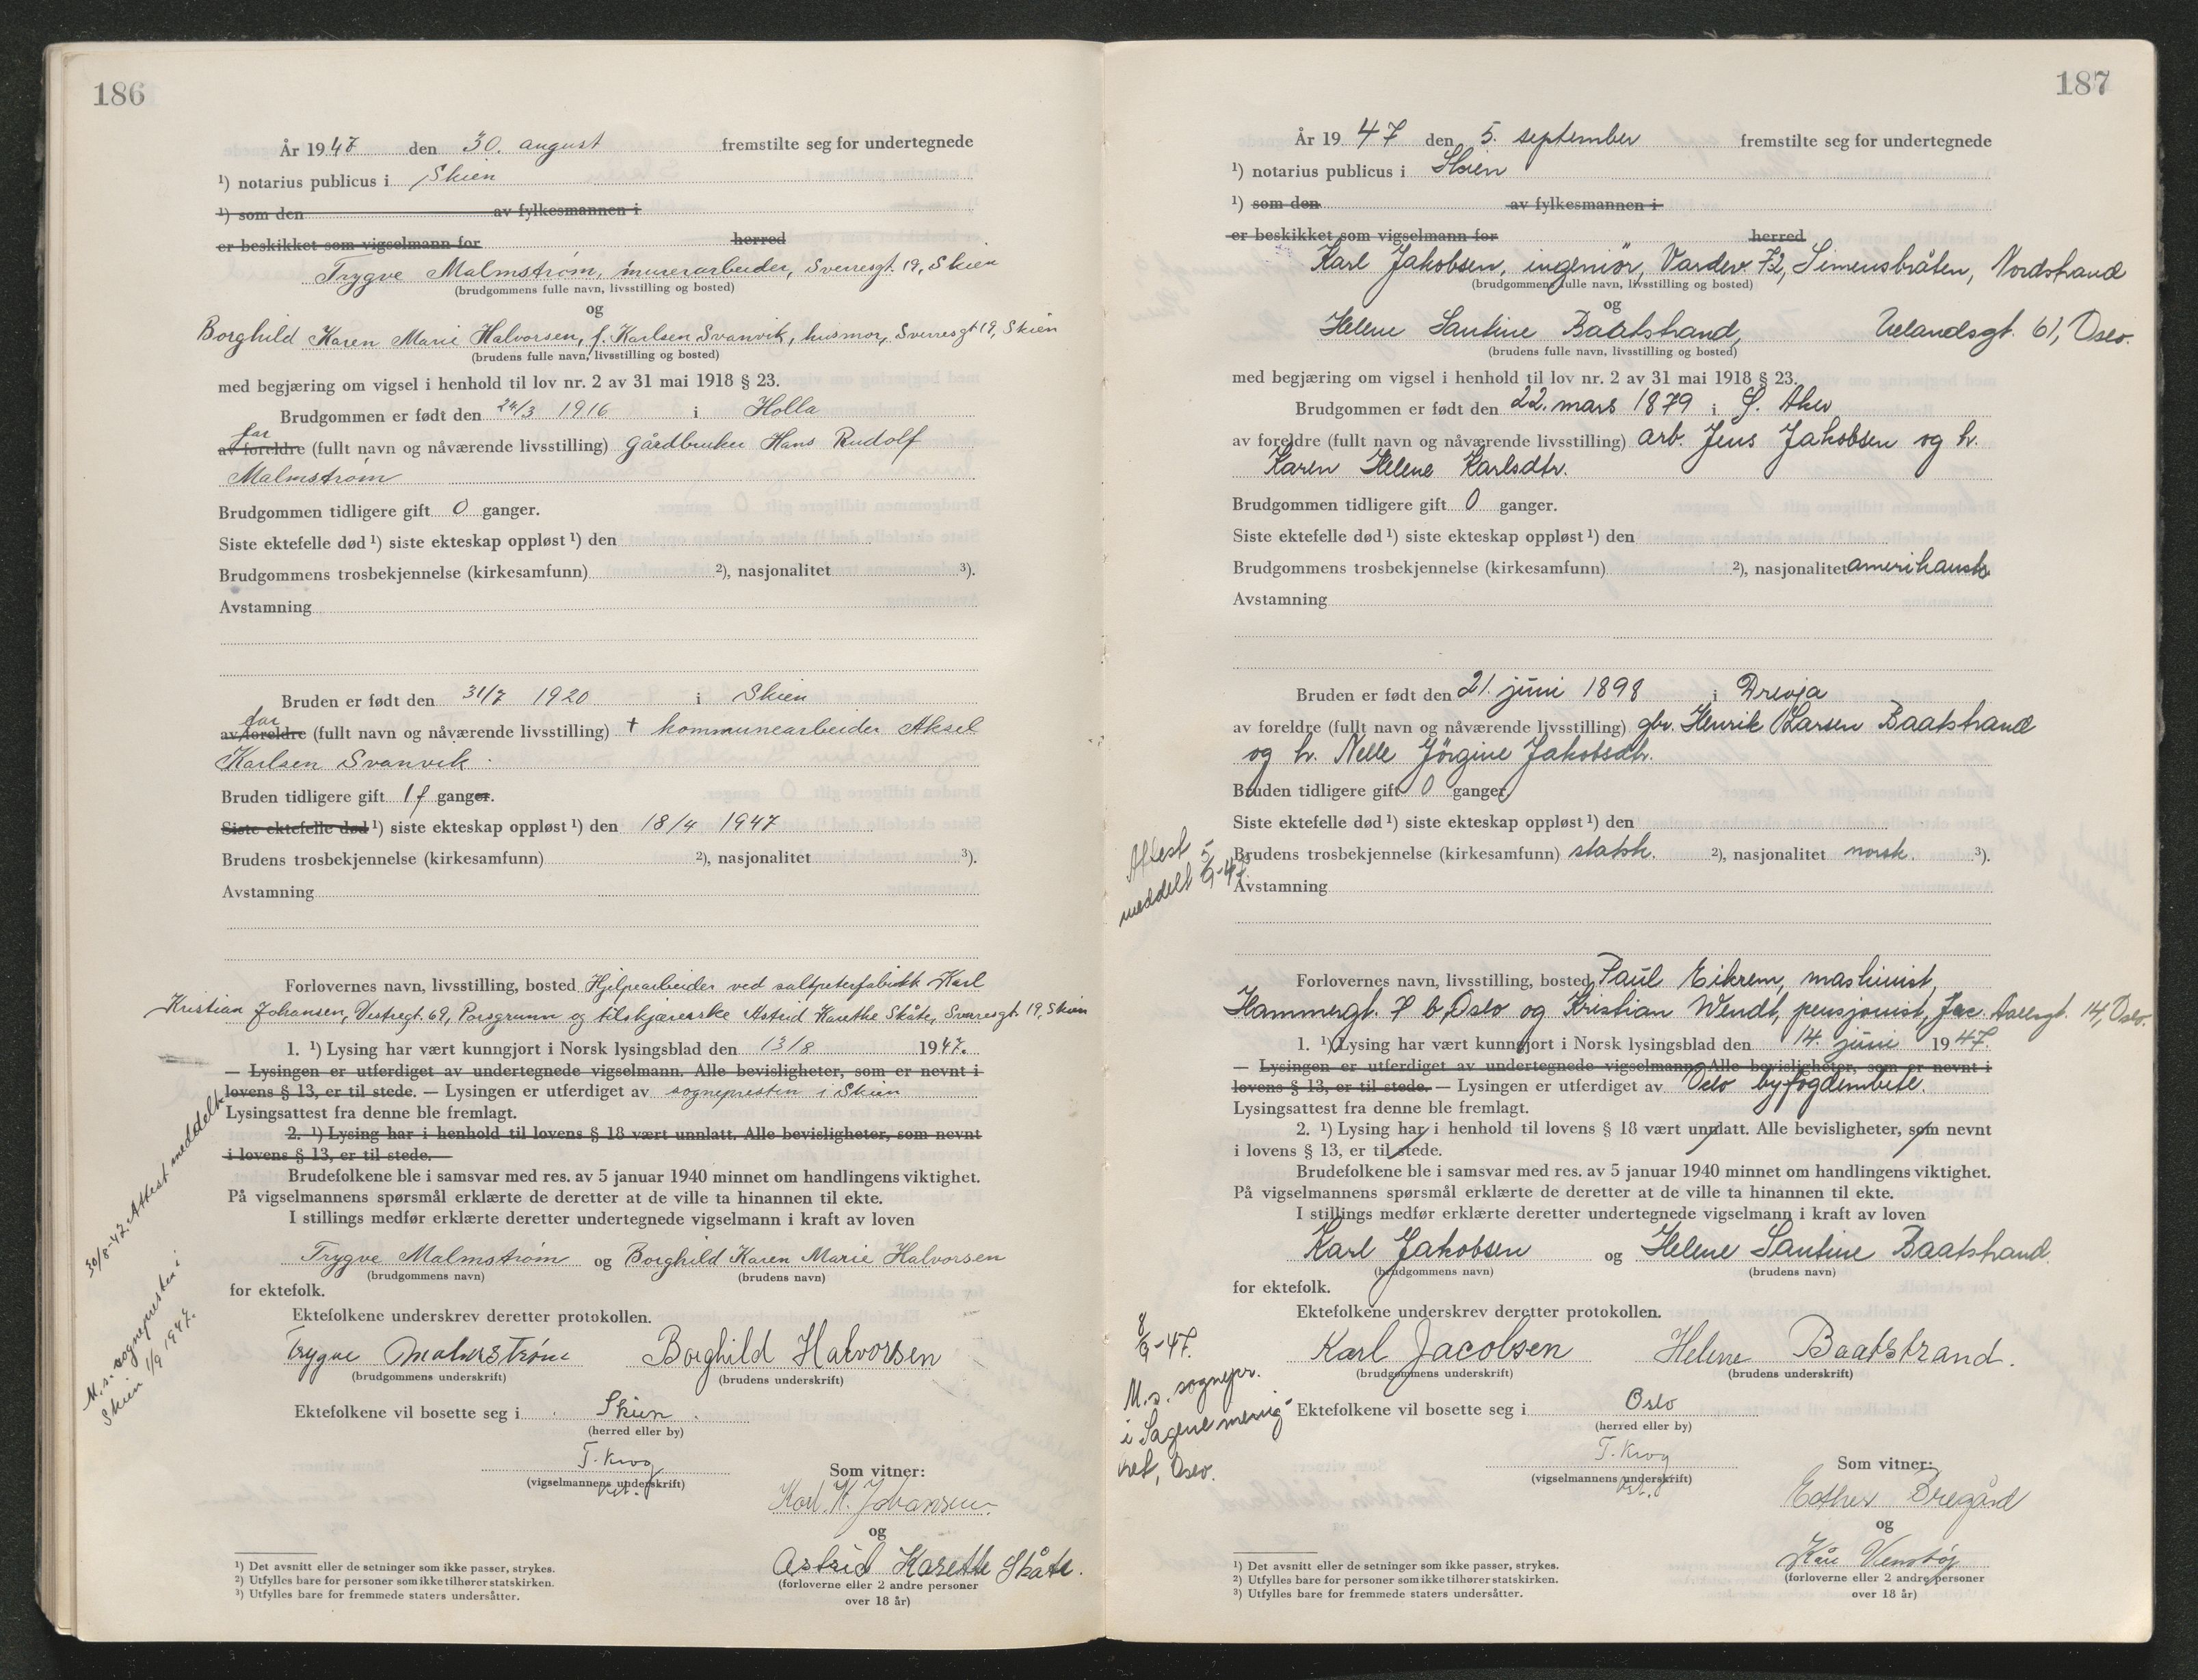 186
År 1947 den 30. august fremstilte seg for undertegnede
¹) notarius publicus i Skien
¹) som den av fylkesmannen i
er beskikket som vigselmann for herred
Trygve Malmstrøm, murerarbeider, Sverresgt. 19, Skien
(brudgommens fulle navn, livsstilling og bosted)
og
Borghild Karen Marie Halvorsen, f. Karlsen Svanvik, husmor, Sverresgt 19, Skien
(brudens fulle navn, livsstilling og bosted)
med begjæring om vigsel i henhold til lov nr. 2 av 31 mai 1918 § 23.
Brudgommen er født den 24/3 1916 i Holla
far
av foreldre (fullt navn og nåværende livsstilling) gårdbruker Hans Rudolf
Malmstrøm
Brudgommen tidligere gift 0 ganger.
Siste ektefelle død ¹) siste ekteskap oppløst ¹) den
Brudgommens trosbekjennelse (kirkesamfunn) ²), nasjonalitet ³).
Avstamning
Bruden er født den 31/7 1920 i Skien
far
av foreldre (fullt navn og nåværende livsstilling) † kommunearbeider Aksel
Karlsen Svanvik.
Bruden tidligere gift 1 g ganger.
Siste ektefelle død ¹) siste ekteskap oppløst ¹) den 18/4 1947
Brudens trosbekjennelse (kirkesamfunn) ²), nasjonalitet ³).
Avstamning
Forlovernes navn, livsstilling, bosted Hjelpearbeider ved salpeterfabrikk Karl
Kristian Johansen, Vestregt. 69, Porsgrunn og tilskjærerske Astrid Karethe Skåte, Sverresgt. 19, Skien
1. ¹) Lysing har vært kunngjort i Norsk lysingsblad den 13/8 1947.
— Lysingen er utferdiget av undertegnede vigselmann. Alle bevisligheter, som er nevnt i
lovens § 13, er til stede. — Lysingen er utferdiget av sognepresten i Skien
Lysingsattest fra denne ble fremlagt.
2. ¹) Lysing har i henhold til lovens § 18 vært unnlatt. Alle bevisligheter, som nevnt
i lovens § 13, er til stede.
Brudefolkene ble i samsvar med res. av 5 januar 1940 minnet om handlingens viktighet.
På vigselmannens spørsmål erklærte de deretter at de ville ta hinannen til ekte.
I stillings medfør erklærte deretter undertegnede vigselmann i kraft av loven
Trygve Malmstrøm og Borghild Karen Marie Halvorsen
(brudgommens navn) (brudens navn)
for ektefolk.
Ektefolkene underskrev deretter protokollen.
Trygve Malmstrøm Borghild Halvorsen
(brudgommens underskrift) (brudens underskrift)
Ektefolkene vil bosette seg i Skien.
(herred eller by)
T. Krog
(vigselmannens underskrift)
Som vitner:
Karl. K. Johansen.
og
Astrid Karethe Skåte.
(forloverne eller 2 andre personer
over 18 år)
¹) Det avsnitt eller de setninger som ikke passer, strykes.
²) Utfylles bare for personer som ikke tilhører statskirken.
³) Utfylles bare for fremmede staters undersåtter.
30/8-47. Attest meddelt
M. s. sognepresten i
Skien 1/9 1947.
187
År 1947 den 5. september fremstilte seg for undertegnede
¹) notarius publicus i Skien
¹) som den av fylkesmannen i
er beskikket som vigselmann for herred
Karl Jakobsen, ingeniør, Vardev. 72, Simensbråten, Nordstrand
(brudgommens fulle navn, livsstilling og bosted)
og
Helene Santine Baatstrand, Uelandsgt. 61, Oslo.
(brudens fulle navn, livsstilling og bosted)
med begjæring om vigsel i henhold til lov nr. 2 av 31 mai 1918 § 23.
Brudgommen er født den 22. mars 1879 i Ø. Aker
av foreldre (fullt navn og nåværende livsstilling) arb. Jens Jakobsen og h.
Karen Helene Karlsdtr.
Brudgommen tidligere gift 0 ganger.
Siste ektefelle død ¹) siste ekteskap oppløst ¹) den
Brudgommens trosbekjennelse (kirkesamfunn) ²), nasjonalitet amerikansk
Avstamning
Bruden er født den 21. juni 1898 i Drevja
av foreldre (fullt navn og nåværende livsstilling) gbr. Henrik Larsen Baatstrand
og h. Nelle Jörgine Jakobsdtr.
Bruden tidligere gift 0 ganger
Siste ektefelle død ¹) siste ekteskap oppløst ¹) den
Brudens trosbekjennelse (kirkesamfunn) statsk. ²), nasjonalitet norsk. ³).
Avstamning
Attest
meddelt 5/9-47.
Forlovernes navn, livsstilling, bosted Paul Eikrem, maskinist,
Hammergt. 7 b, Oslo og Kristian Wendt, pensjonist, Jac. Aallsgt. 14, Oslo.
1. ¹) Lysing har vært kunngjort i Norsk lysingsblad den 14. juni 1947.
— Lysingen er utferdiget av undertegnede vigselmann. Alle bevisligheter, som er nevnt i
lovens § 13, er til stede. — Lysingen er utferdiget av Oslo byfogdembete.
Lysingsattest fra denne ble fremlagt.
2. ¹) Lysing har i henhold til lovens § 18 vært unnlatt. Alle bevisligheter, som nevnt
i lovens § 13, er til stede.
Brudefolkene ble i samsvar med res. av 5 januar 1940 minnet om handlingens viktighet.
På vigselmannens spørsmål erklærte de deretter at de ville ta hinannen til ekte.
I stillings medfør erklærte deretter undertegnede vigselmann i kraft av loven
Karl Jakobsen og Helene Santine Baatstrand.
(brudgommens navn) (brudens navn)
for ektefolk.
Ektefolkene underskrev deretter protokollen.
Karl Jacobsen Helene Baatstrand.
(brudgommens underskrift) (brudens underskrift)
Ektefolkene vil bosette seg i Oslo
(herred eller by)
T. Krog
(vigselmannens underskrift)
Som vitner:
Esther Bregård
og
Kåre Venstøp
(forloverne eller 2 andre personer
over 18 år)
8/9-47.
M. s. sognepr.
i Sagene menig-
het, Oslo.
¹) Det avsnitt eller de setninger som ikke passer, strykes.
²) Utfylles bare for personer som ikke tilhører statskirken.
³) Utfylles bare for fremmede staters undersåtter.